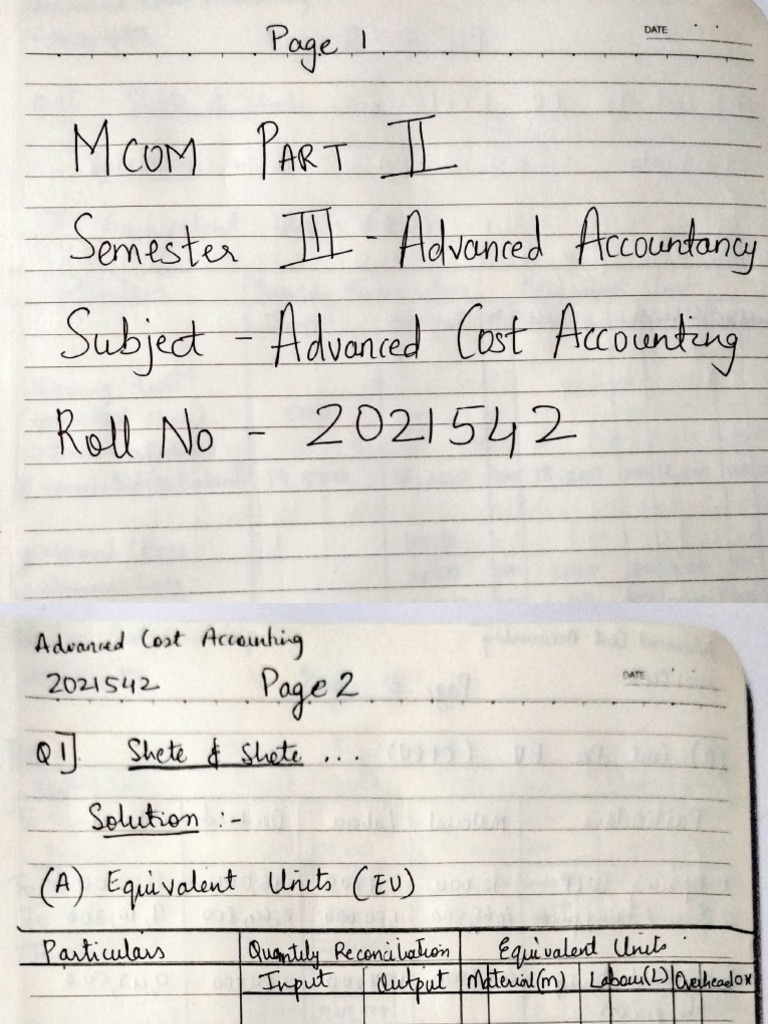 Page 1
DATE
MCOM PART II
Semester III - Advanced Accountancy
Subject - Advanced Cost Accounting
Roll No - 2021542
Advanced Cost Accounting
2021542 Page 2
DATE
Q1]. Shete & Shete ...
Solution :-
(A) Equivalent Units (EU)
Particulars Quantity Reconciliation Equivalent Units
Input Output Material(m) Labour(L) Overhead